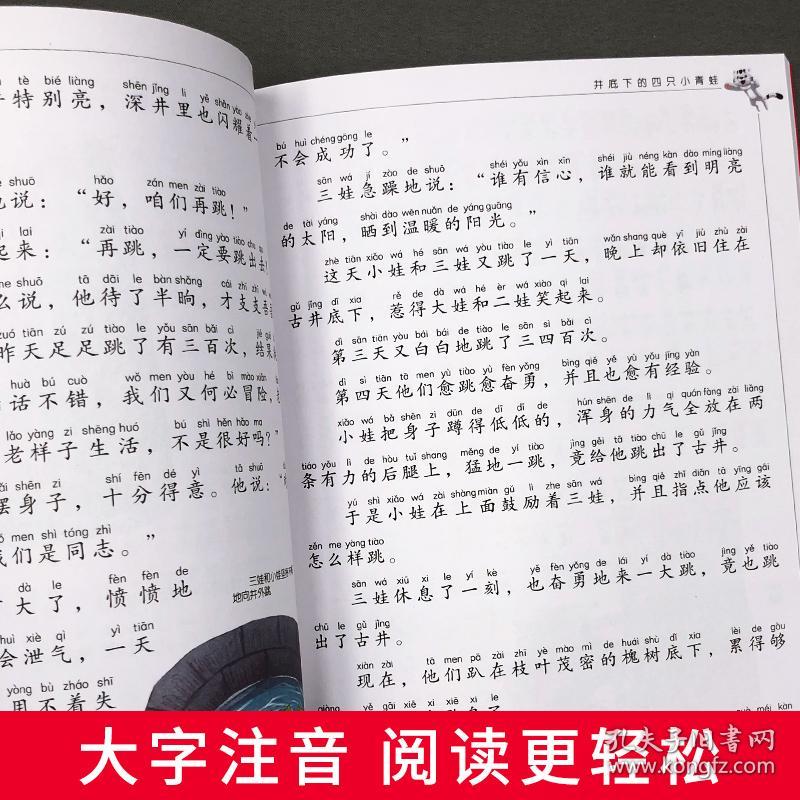 tè bié liàng shēn jǐng li yě shǎn yào zhe
特别亮，深井里也闪耀着一
shuō hǎo zán men zài tiào
说：“好，咱们再跳！”
lai zài tiào yí dìng yào tiào chu
起来：“再跳，一定要跳出去！
me shuō tā dāi le bàn shǎng cái zhī zhī
么说，他待了半晌，才支支吾
zuó tiān zú zú tiào le yǒu sān bǎi cì jié
昨天足足跳了有三百次，结果
huà bú cuò wǒ men yòu hé bì mào xiǎn
话不错，我们又何必冒险，
lǎo yàng zi shēng huó bú shì hěn hǎo ma
老样子生活，不是很好吗？”
shēn zi shí fēn dé yì tā shuō
摆身子，十分得意。他说：“
men shì tóng zhì
我们是同志。”
dà le fèn fèn de
大了，愤愤地
huì xiè qì yì tiān
会泄气，一天
yòng bù zháo shī
用不着失
三娃和小娃
地向井外
井底下的四只小青蛙
bú huì chéng gōng le
不会成功了。”
sān wá jí zào de shuō shéi yǒu xìn xīn shéi jiù néng kàn dào míng liàng
三娃急躁地说：“谁有信心，谁就能看到明亮
de tài yáng shài dào wēn nuǎn de yáng guāng
的太阳，晒到温暖的阳光。”
zhè tiān xiǎo wá hé sān wá yòu tiào le yì tiān wǎn shang què yī jiù zhù zài
这天小娃和三娃又跳了一天，晚上却依旧住在
gǔ jǐng dǐ xia rě de dà wá hé èr wá xiào qi lai
古井底下，惹得大娃和二娃笑起来。
dì sān tiān yòu bái bái de tiào le sān sì bǎi cì
第三天又白白地跳了三四百次。
dì sì tiān tā men yù tiào yù fèn yǒng bìng qiě yě yù yǒu jīng yàn
第四天他们愈跳愈奋勇，并且也愈有经验。
xiǎo wá bǎ shēn zi dūn de dī dī de hún shēn de lì qi quán fàng zài liǎng
小娃把身子蹲得低低的，浑身的力气全放在两
tiáo yǒu lì de hòu tuǐ shang měng de yí tiào jìng gěi tā tiào chū le gǔ jǐng
条有力的后腿上，猛地一跳，竟给他跳出了古井。
yú shì xiǎo wá zài shàng miàn gǔ lì zhe sān wá bìng qiě zhǐ diǎn tā yīng gāi
于是小娃在上面鼓励着三娃，并且指点他应该
zěn me yàng tiào
怎么样跳。
sān wá xiū xi le yí kè yě fèn yǒng de lái yí dà tiào jìng yě tiào
三娃休息了一刻，也奋勇地来一大跳，竟也跳
chū le gǔ jǐng
出了古井。
xiàn zài tā men pā zài zhī yè mào mì de huái shù dǐ xia lèi de gòu
现在，他们趴在枝叶茂密的槐树底下，累得够
大字注音 阅读更轻松
孔夫子旧书网
www.kongfz.com